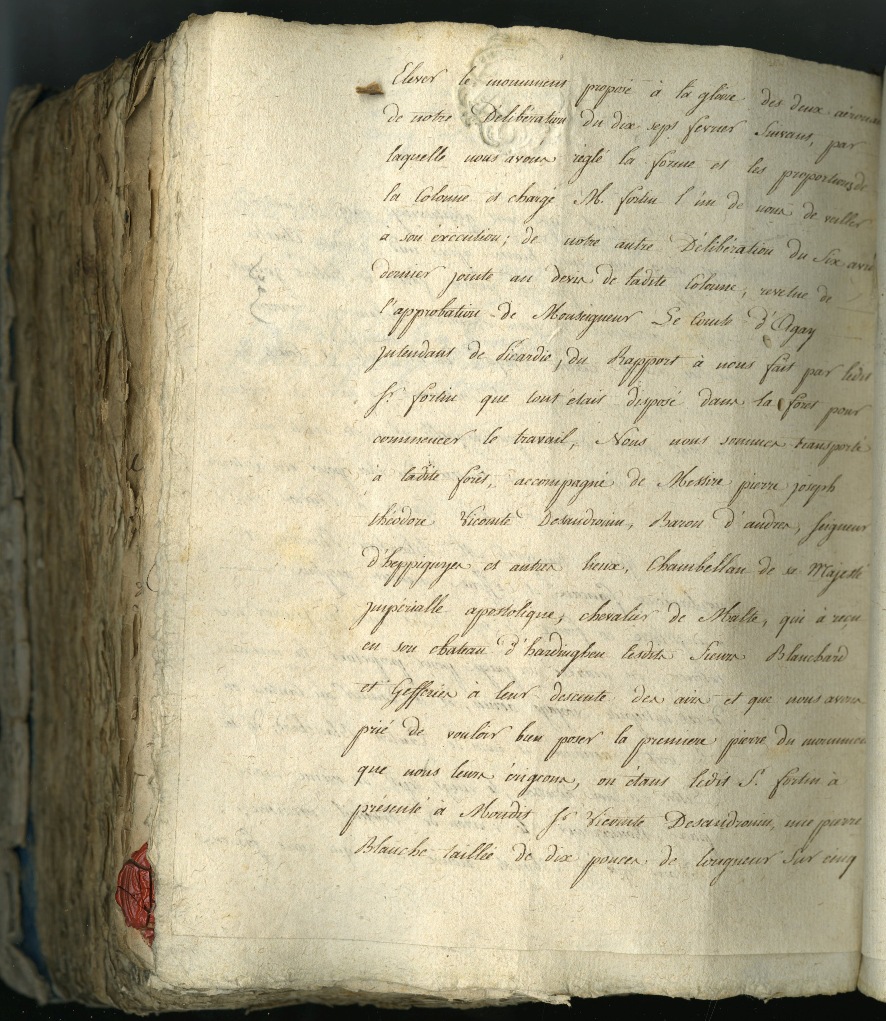 Elever le monument proposé à la gloire des deux
de notre Délibération du dix sept fevrier Suivant, par
laquelle nous avons reglé la forme et les proportions de
la Colonne et chargé M. fortin l'un de nous de veiller
a son éxécution; de notre autre Délibération du Six avril
dernier jointe au devis de ladite Colonne, revetue de
l'approbation de Monseigneur Le Comte d'Agay
jntendant de picardie, du Rapport à nous fait par ledit
Sr. fortin que tout était disposé dans la forêt pour
commencer le travail, Nous nous sommes transporté
a ladite forêt, accompagné de Messire pierre joseph
théodore Vicomte Desandrouin, Baron d'andres, Seigneur
d'heppignyes et autres lieux, Chambellan de sa Majesté
jmperialle apostolique, chevalier de Malte, qui à reçu
en son chateau d'hardinghen lesdits Sieurs Blanchard
et Gefferies à leur descente des airs et que nous avons
prié de vouloir bien poser la premiere pierre du monument
que nous leurs érigeons, ou étant ledit S. fortin à
présenté à Mondit Sr Vicomte Desandrouin, une pierre
Blanche taillée de dix pouces de longueur Sur cinq